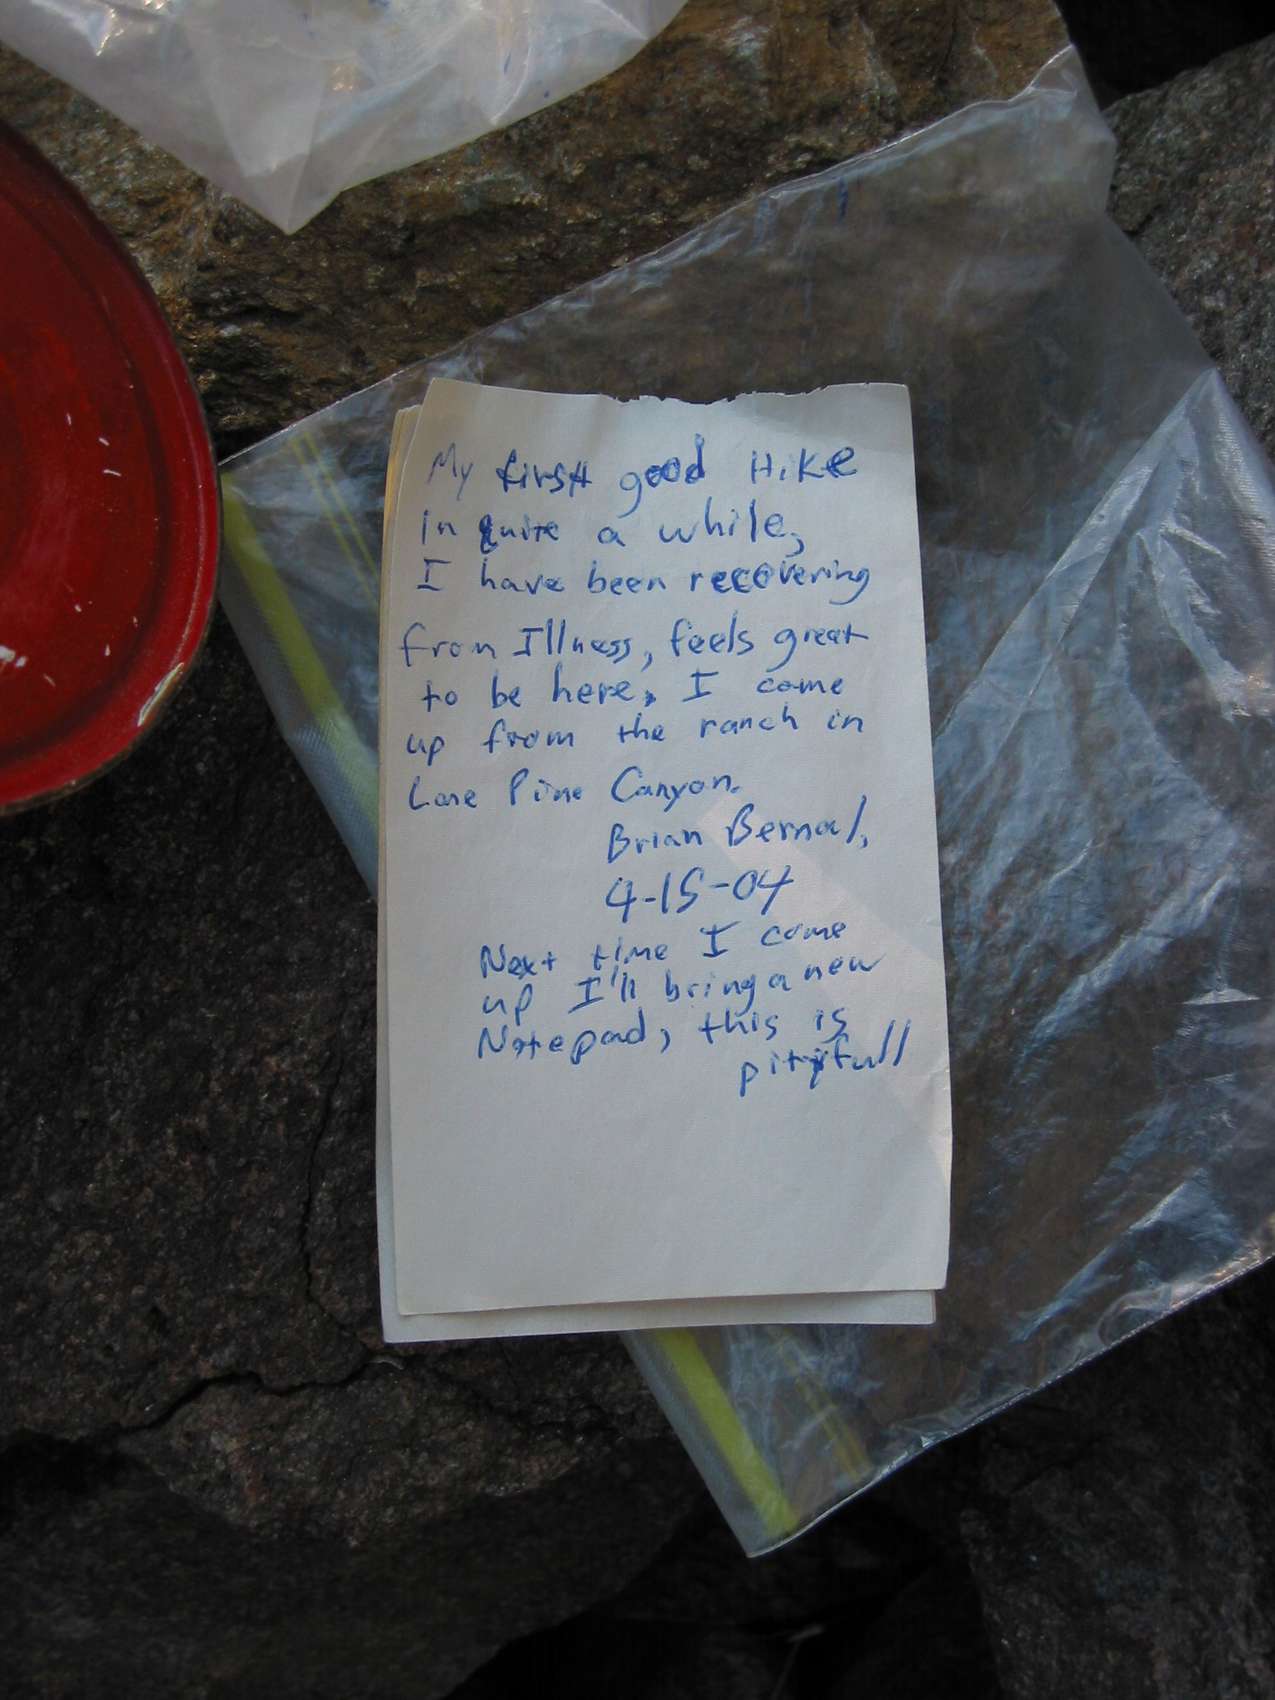 My first good Hike
In quite a while,
I have been recovering
from Illness, feels great
to be here, I come
up from the ranch in
Lone Pine Canyon.
Brian Bernal,
4-15-04
Next time I come
up I'll bring a new
Notepad, this is
pityfull